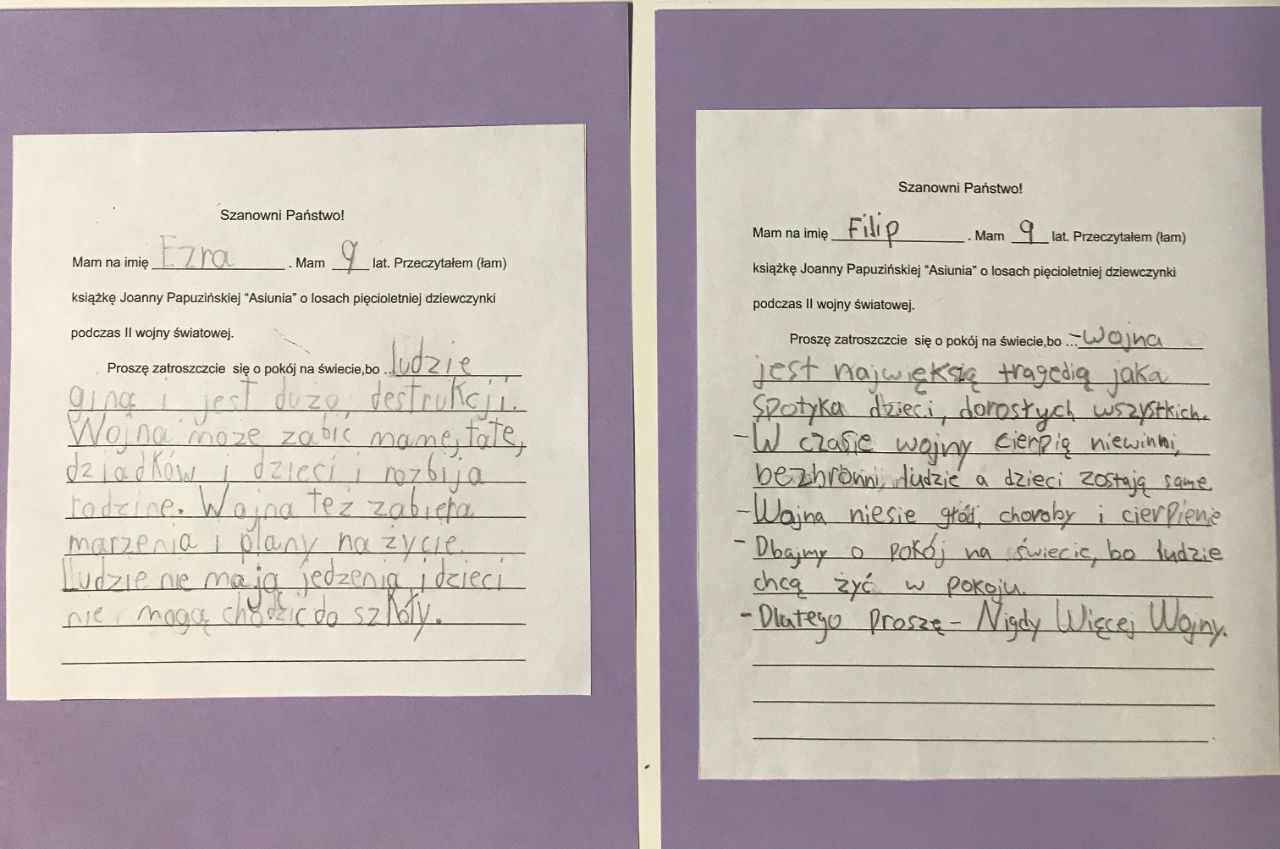 Szanowni Państwo!
Mam na imię Ezra . Mam 9 lat. Przeczytałem (łam)
książkę Joanny Papuzińskiej "Asiunia" o losach pięcioletniej dziewczynki
podczas II wojny światowej.
Proszę zatroszczcie się o pokój na świecie,bo ... ludzie
giną i jest dużo destrukcji.
Wojna może zabić mamę, tatę,
dziadków i dzieci i rozbija
rodzinę. Wojna też zabiera
marzenia i plany na życie.
Ludzie nie mają jedzenia i dzieci
nie mogą chodzić do szkoły.
Szanowni Państwo!
Mam na imię Filip . Mam 9 lat. Przeczytałem (łam)
książkę Joanny Papuzińskiej "Asiunia" o losach pięcioletniej dziewczynki
podczas II wojny światowej.
Proszę zatroszczcie się o pokój na świecie,bo ... -Wojna
jest największą tragedią jaka
spotyka dzieci, dorosłych wszystkich.
-W czasie wojny cierpią niewinni,
bezbronni, ludzie a dzieci zostają same.
-Wojna niesie głód, choroby i cierpienie
- Dbajmy o pokój na świecie, bo ludzie
chcą żyć w pokoju.
- Dlatego proszę - Nigdy Więcej Wojny.